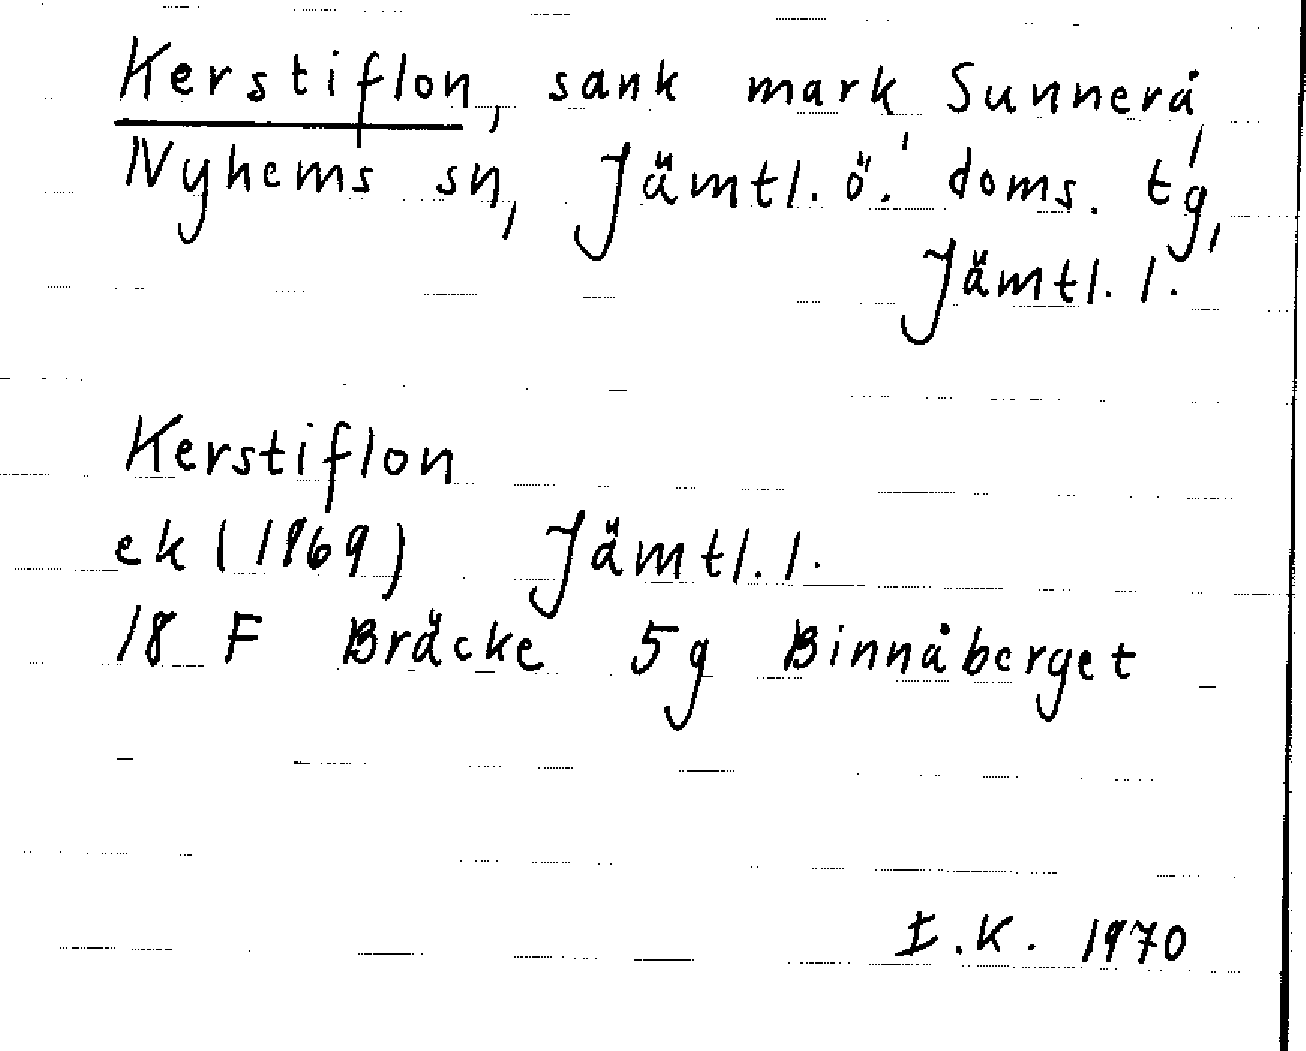 Kerstiflon, sank mark, Sunnerå,
Nyhems sn, Jämtl. ö. doms. tg,
Jämtl. l.
Kerstiflon
ek (1969) Jämtl. l.
18 F Bräcke 5g Binnåberget
I.K. 1970